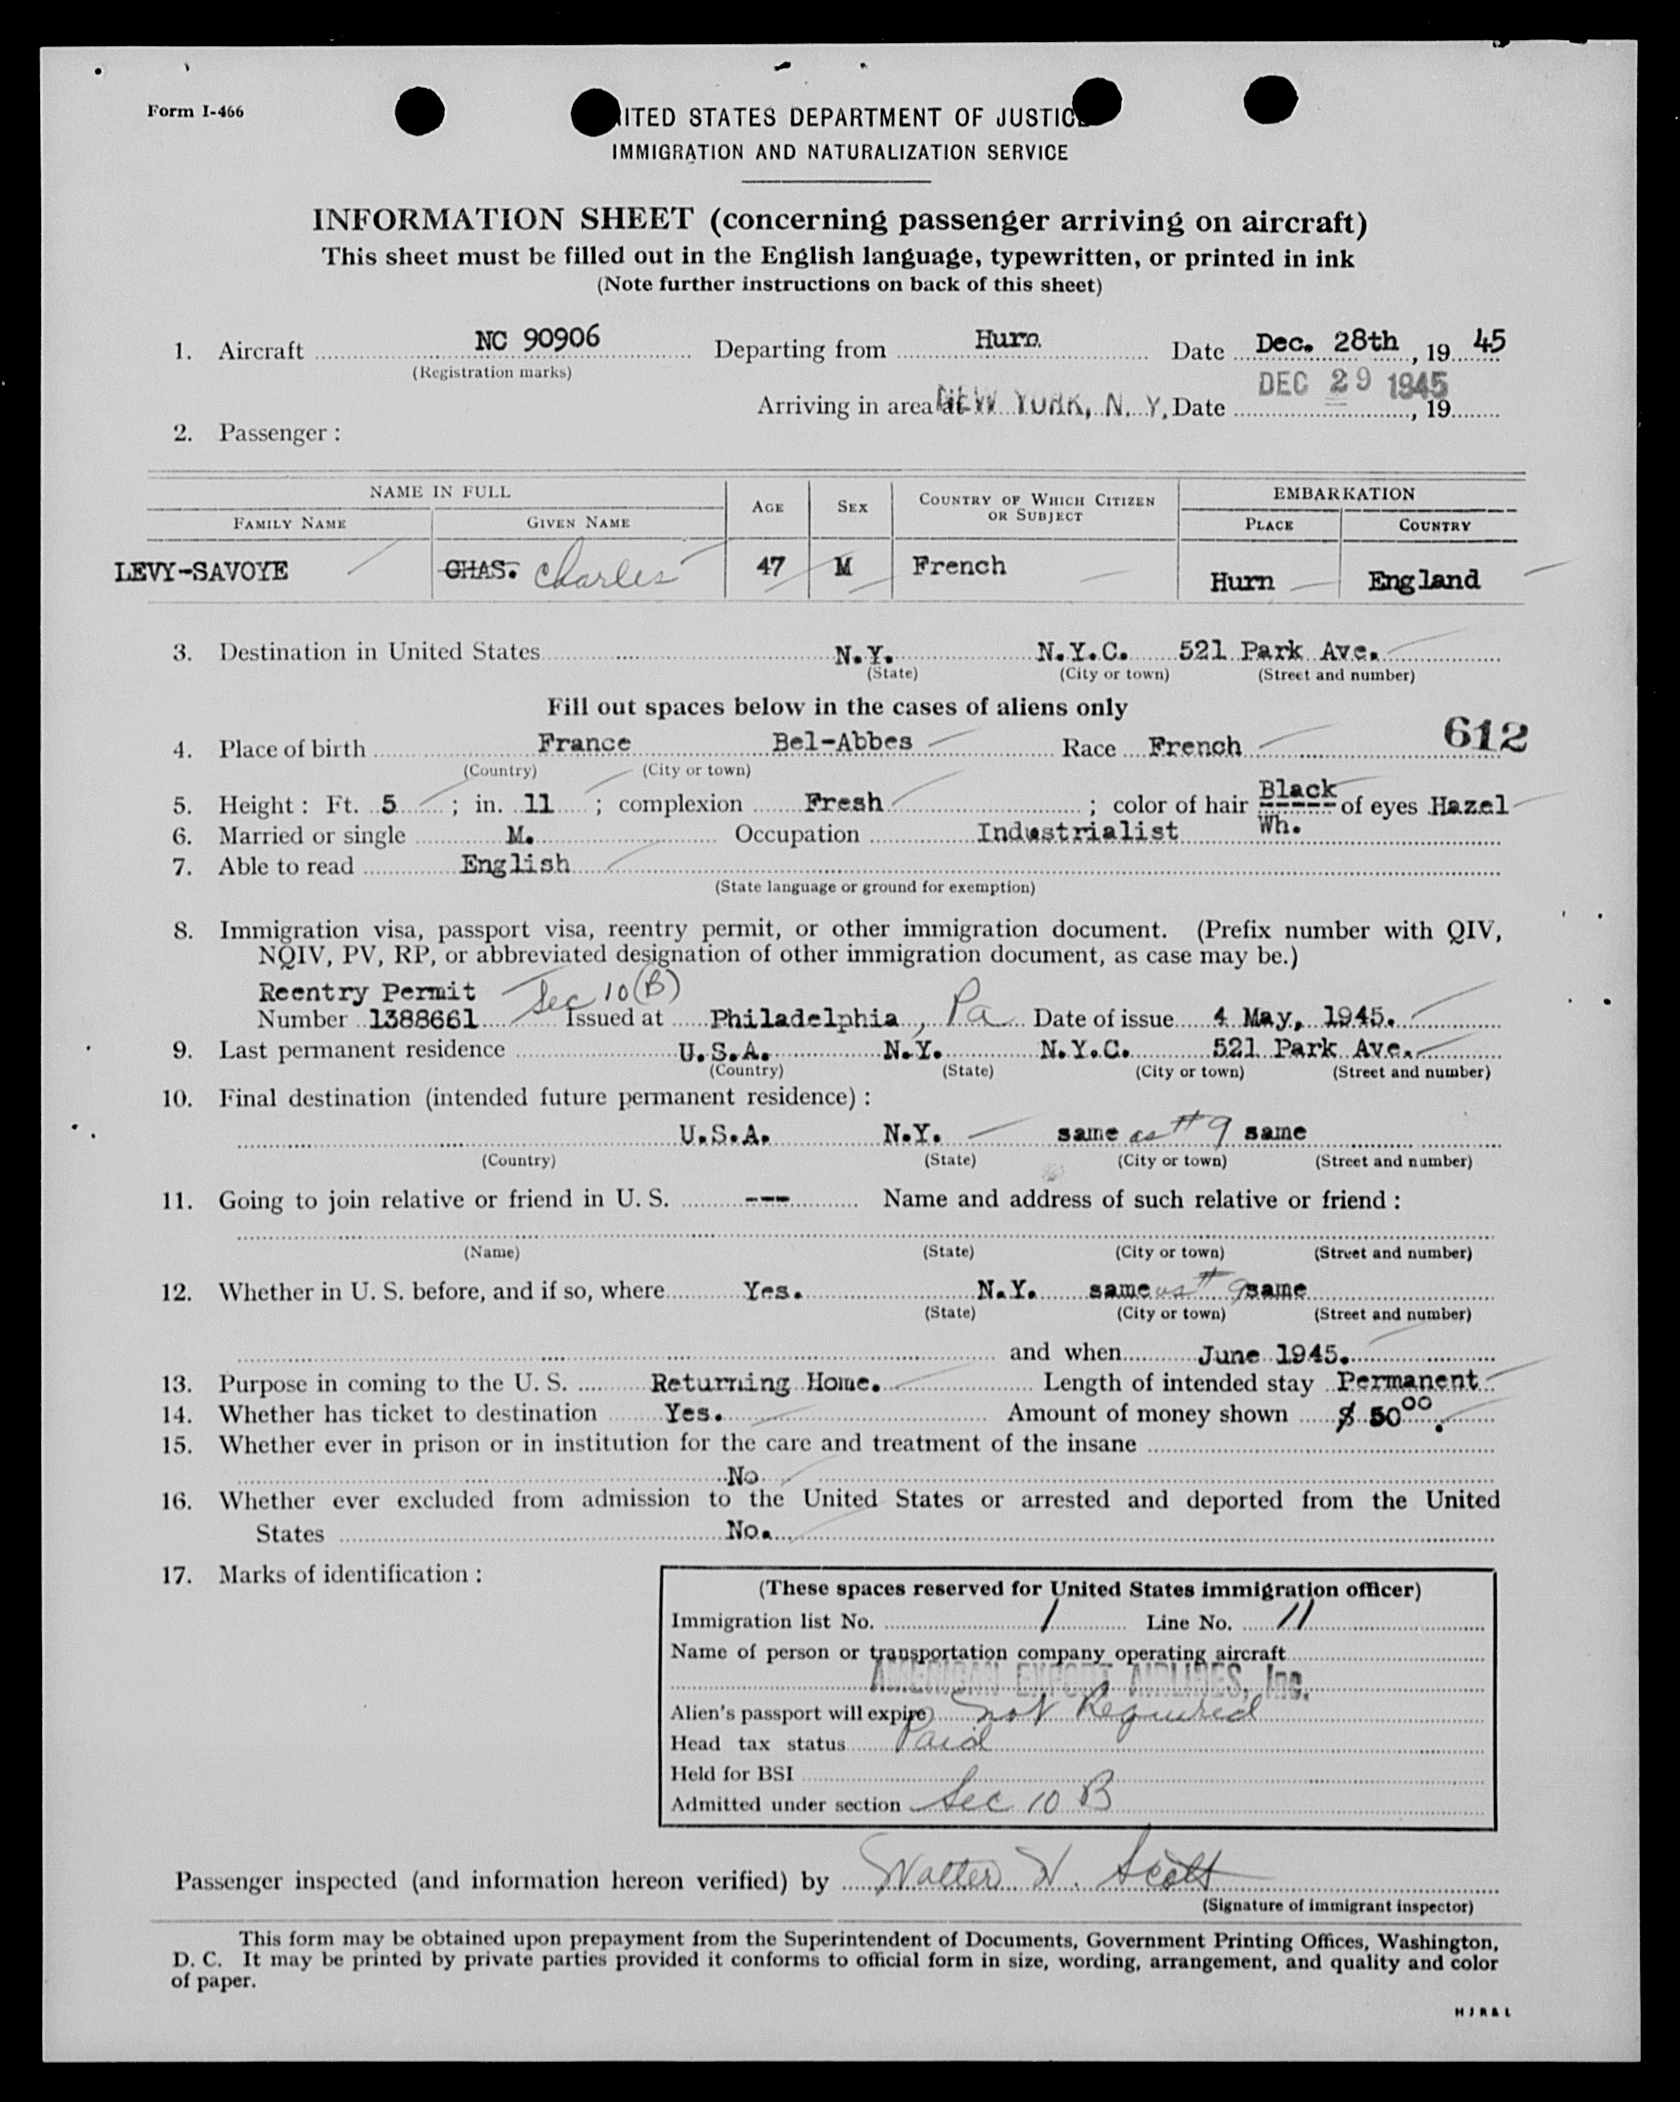 Form I-466
UNITED STATES DEPARTMENT OF JUSTICE
IMMIGRATION AND NATURALIZATION SERVICE
INFORMATION SHEET (concerning passenger arriving on aircraft)
This sheet must be filled out in the English language, typewritten, or printed in ink
(Note further instructions on back of this sheet)
1. Aircraft NC 90906 Departing from Hurn Date Dec. 28th, 19 45
(Registration marks)
DEC 29 1945
Arriving in area at NEW YORK, N. Y. Date , 19
2. Passenger:
NAME IN FULL AGE SEX COUNTRY OF WHICH CITIZEN OR SUBJECT EMBARKATION
FAMILY NAME GIVEN NAME PLACE COUNTRY
LEVY-SAVOYE CHAS. Charles 47 M French Hurn England
3. Destination in United States N.Y. N.Y.C. 521 Park Ave.
(State) (City or town) (Street and number)
Fill out spaces below in the cases of aliens only
612
4. Place of birth France Bel-Abbes Race French
(Country) (City or town)
5. Height: Ft. 5; in. 11; complexion Fresh; color of hair Black ----- of eyes Hazel
6. Married or single M. Occupation Industrialist Wh.
7. Able to read English
(State language or ground for exemption)
8. Immigration visa, passport visa, reentry permit, or other immigration document. (Prefix number with QIV,
NQIV, PV, RP, or abbreviated designation of other immigration document, as case may be.)
Reentry Permit Sec 10(B)
Number 1388661 Issued at Philadelphia, Pa Date of issue 4 May, 1945.
9. Last permanent residence U.S.A. N.Y. N.Y.C. 521 Park Ave.
(Country) (State) (City or town) (Street and number)
10. Final destination (intended future permanent residence):
U.S.A. N.Y. same as #9 same
(Country) (State) (City or town) (Street and number)
11. Going to join relative or friend in U. S. --- Name and address of such relative or friend:
(Name) (State) (City or town) (Street and number)
12. Whether in U. S. before, and if so, where Yes. N.Y. same as #9 same
(State) (City or town) (Street and number)
and when June 1945.
13. Purpose in coming to the U. S. Returning Home. Length of intended stay Permanent
14. Whether has ticket to destination Yes. Amount of money shown $ 50 00.
15. Whether ever in prison or in institution for the care and treatment of the insane
No
16. Whether ever excluded from admission to the United States or arrested and deported from the United
States No.
17. Marks of identification:
(These spaces reserved for United States immigration officer)
Immigration list No. 1 Line No. 11
Name of person or transportation company operating aircraft
AMERICAN EXPORT AIRLINES, Inc.
Alien's passport will expire not Required
Head tax status Paid
Held for BSI
Admitted under section Sec 10 B
Passenger inspected (and information hereon verified) by Walter W. Scott
(Signature of immigrant inspector)
This form may be obtained upon prepayment from the Superintendent of Documents, Government Printing Offices, Washington,
D. C. It may be printed by private parties provided it conforms to official form in size, wording, arrangement, and quality and color
of paper.
HJR&L